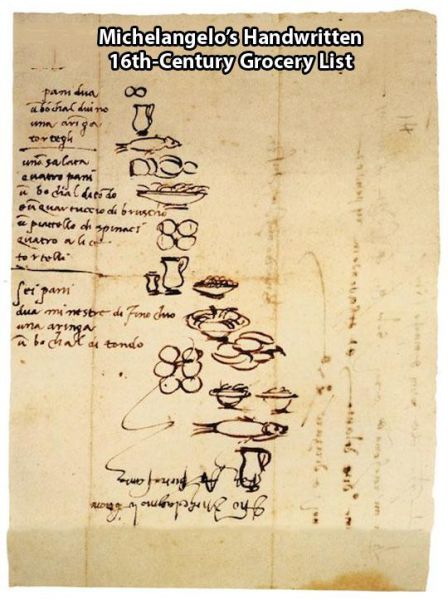 Michelangelo's Handwritten
16th-Century Grocery List
pani dua
ū bochal di vino
una aringa
tortegli
una salata
quatro pani
ū bochal di tōdo
e ū quartuccio di bruscho
ū piattello di spinaci
quatro alice
tortelli
sei pani
dua minestre di finochio
una aringa
ū bochal di tondo